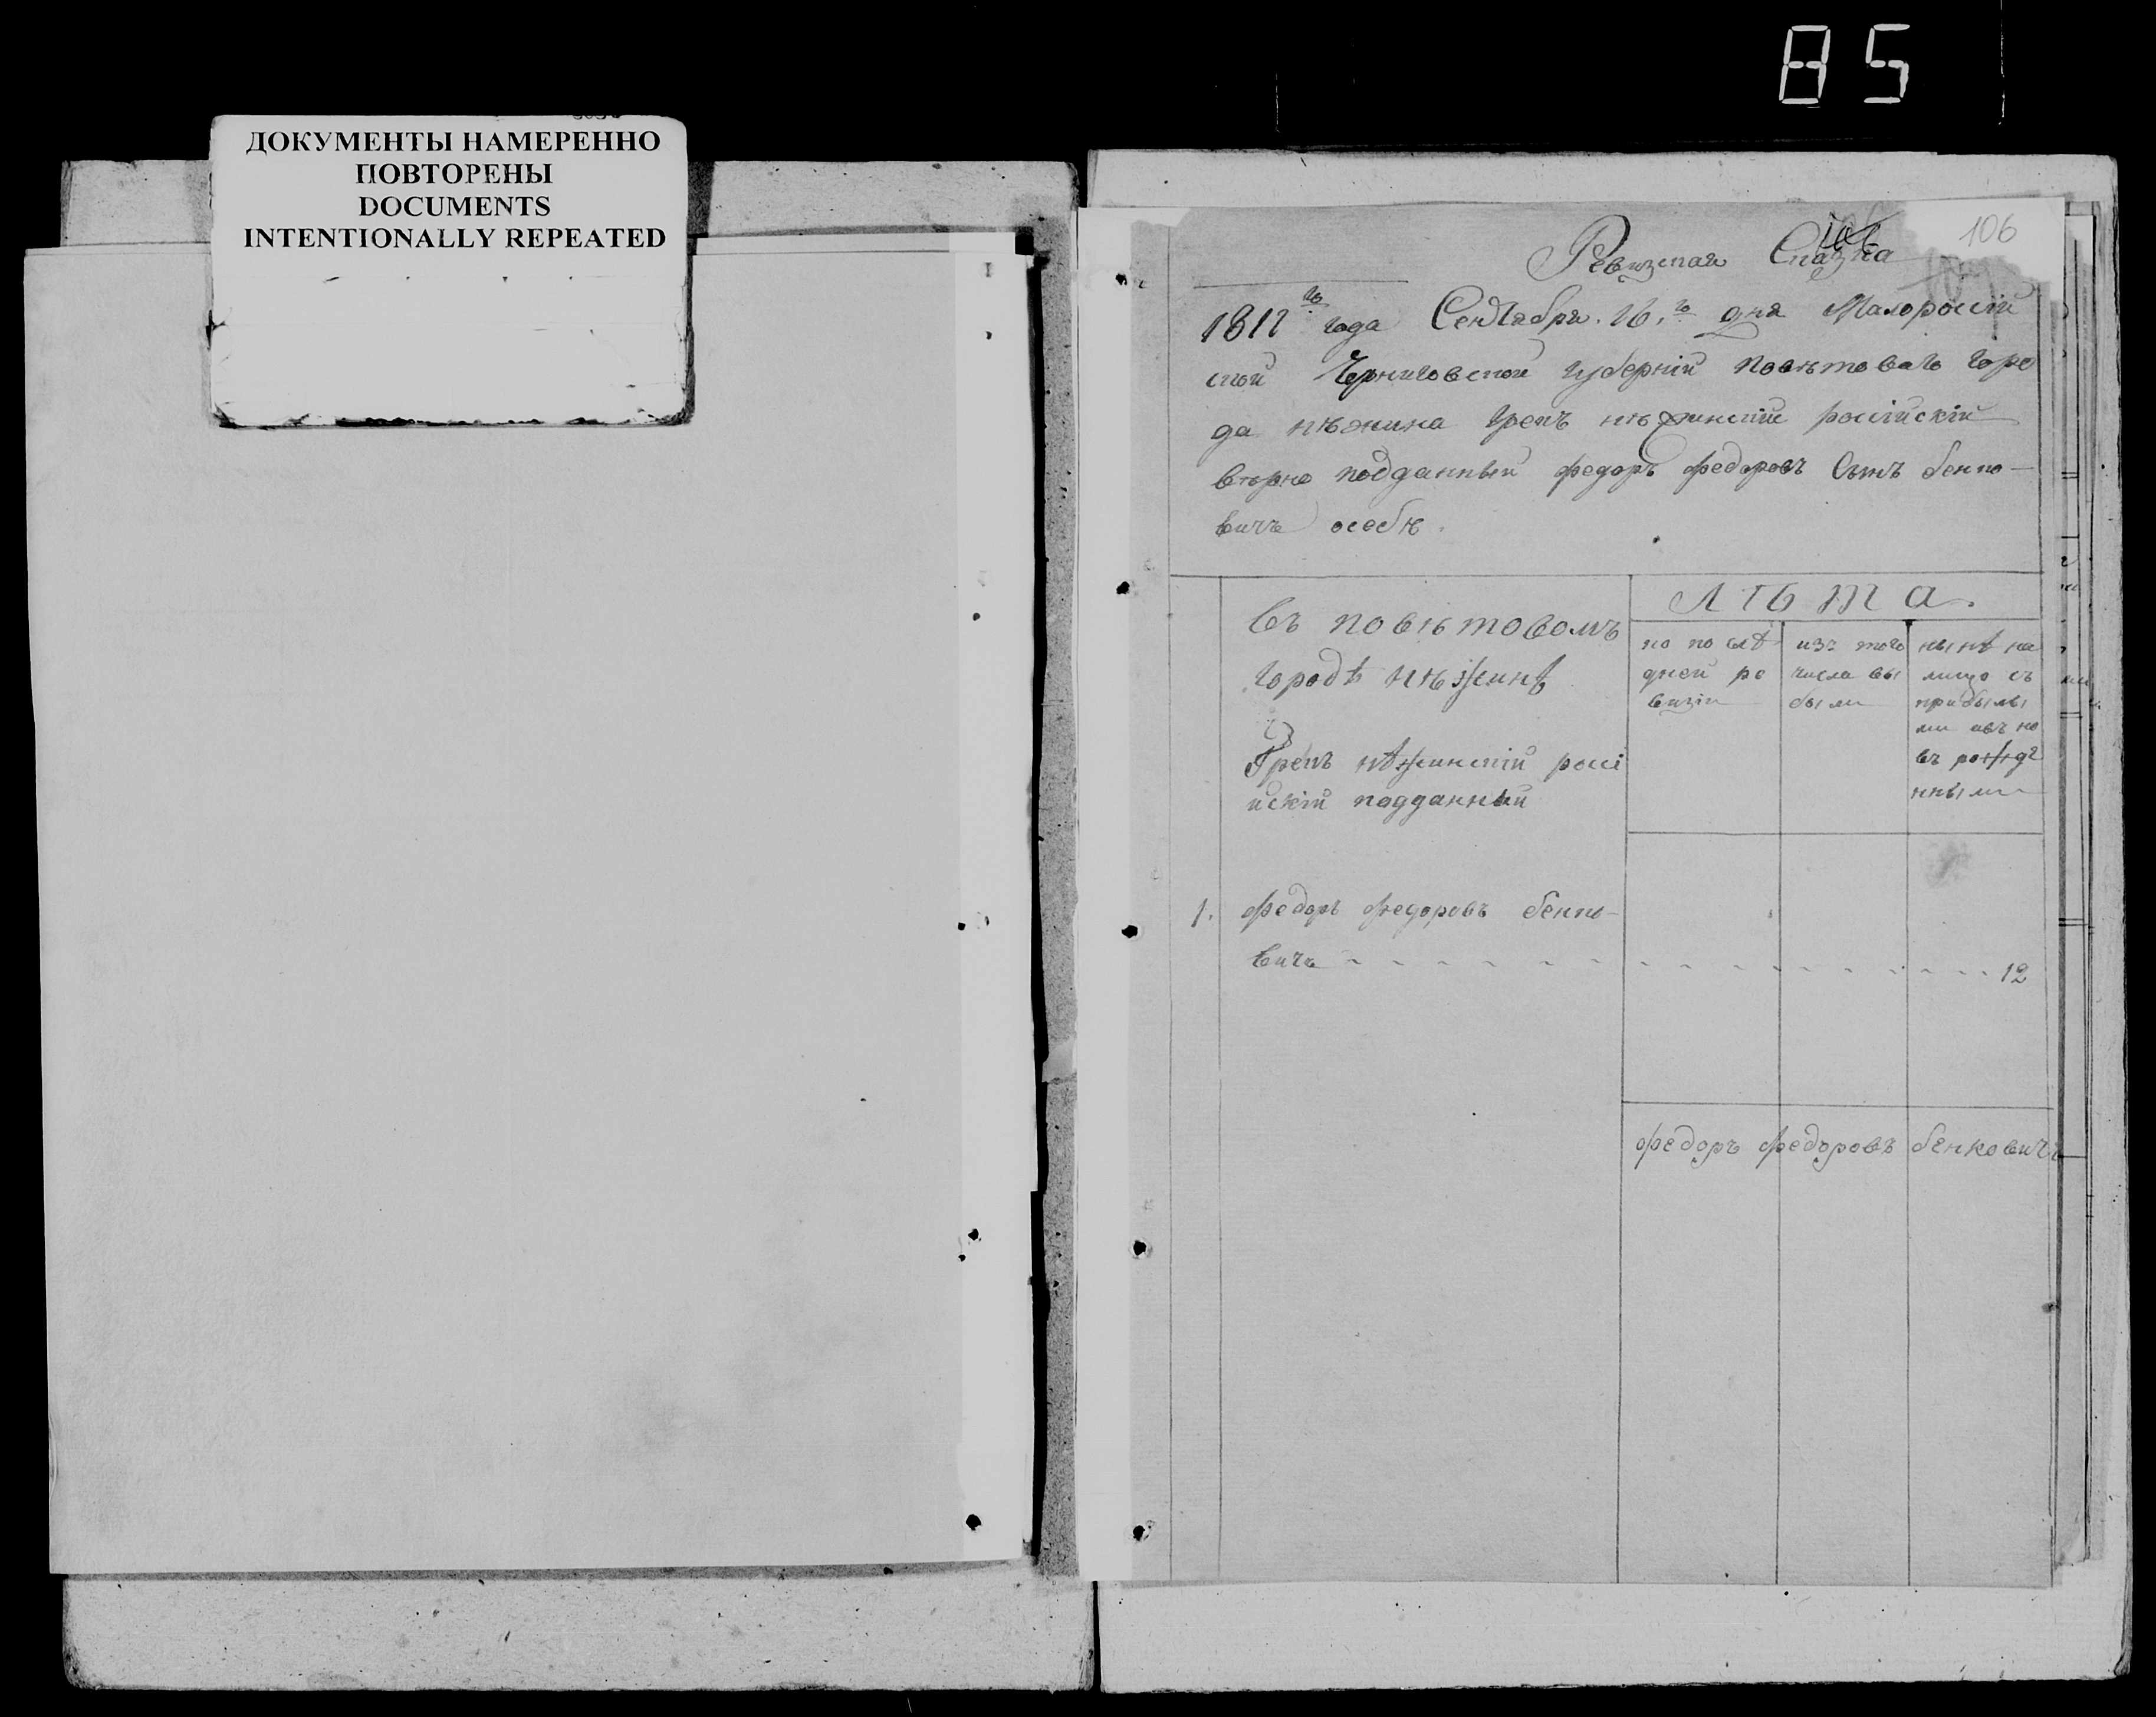 85
ДОКУМЕНТЫ НАМЕРЕННО
ПОВТОРЕНЫ
DOCUMENTS
INTENTIONALLY REPEATED
106
Ревизская Сказка
1811го года Сентября 16го дня Малороссій
ской Черниговской губерніи повѣтоваго горо
да нѣжина грекъ нѣжинскій россійскій
вѣрно подданный федоръ федоровъ сынъ бенко-
вичъ особѣ.
въ повѣтовомъ
городѣ нѣжинѣ
Грекъ нѣжинскій россі
йскій подданный
Лѣта.
по послѣ
дней ре
визіи
изъ того
числа вы
были
нынѣ на
лицо съ
прибылы
ми
въ рожде
нными
1. федоръ федоровъ бенко-
вичъ 12
федоръ федоровъ бенковичъ